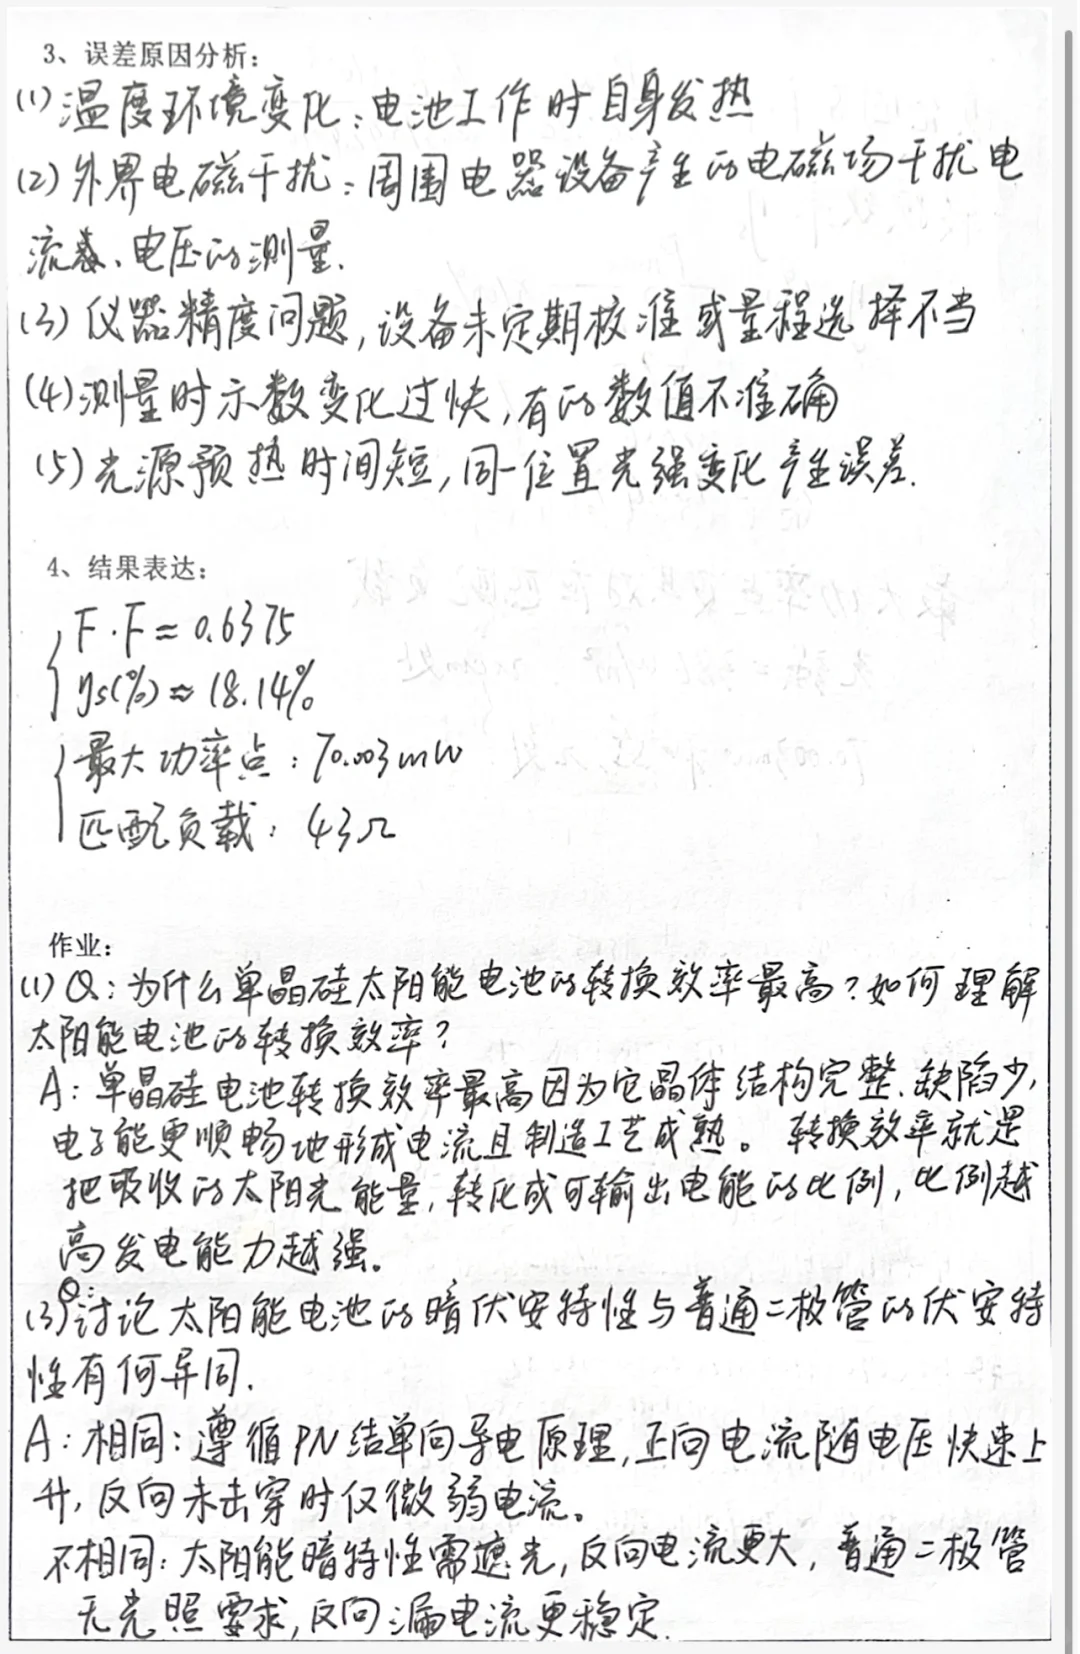 3、误差原因分析：
(1)温度环境变化：电池工作时自身发热
(2)外界电磁干扰：周围电器设备产生的电磁场干扰电
流表、电压的测量.
(3)仪器精度问题,设备未定期校准或量程选择不当
(4)测量时示数变化过快,有的数值不准确
(5)光源预热时间短,同一位置光强变化产生误差.
4、结果表达：
F·F≈0.6375
ηs(%)≈18.14%
最大功率点：70.003mW
匹配负载：43Ω
作业：
(1)Q：为什么单晶硅太阳能电池的转换效率最高？如何理解
太阳能电池的转换效率？
A：单晶硅电池转换效率最高因为它晶体结构完整、缺陷少,
电子能更顺畅地形成电流且制造工艺成熟。转换效率就是
把吸收的太阳光能量,转化成可输出电能的比例,比例越
高发电能力越强。
(3)Q：讨论太阳能电池的暗伏安特性与普通二极管的伏安特
性有何异同.
A：相同：遵循PN结单向导电原理,正向电流随电压快速上
升,反向未击穿时仅微弱电流。
不相同：太阳能暗特性需遮光,反向电流更大,普通二极管
无光照要求,反向漏电流更稳定.